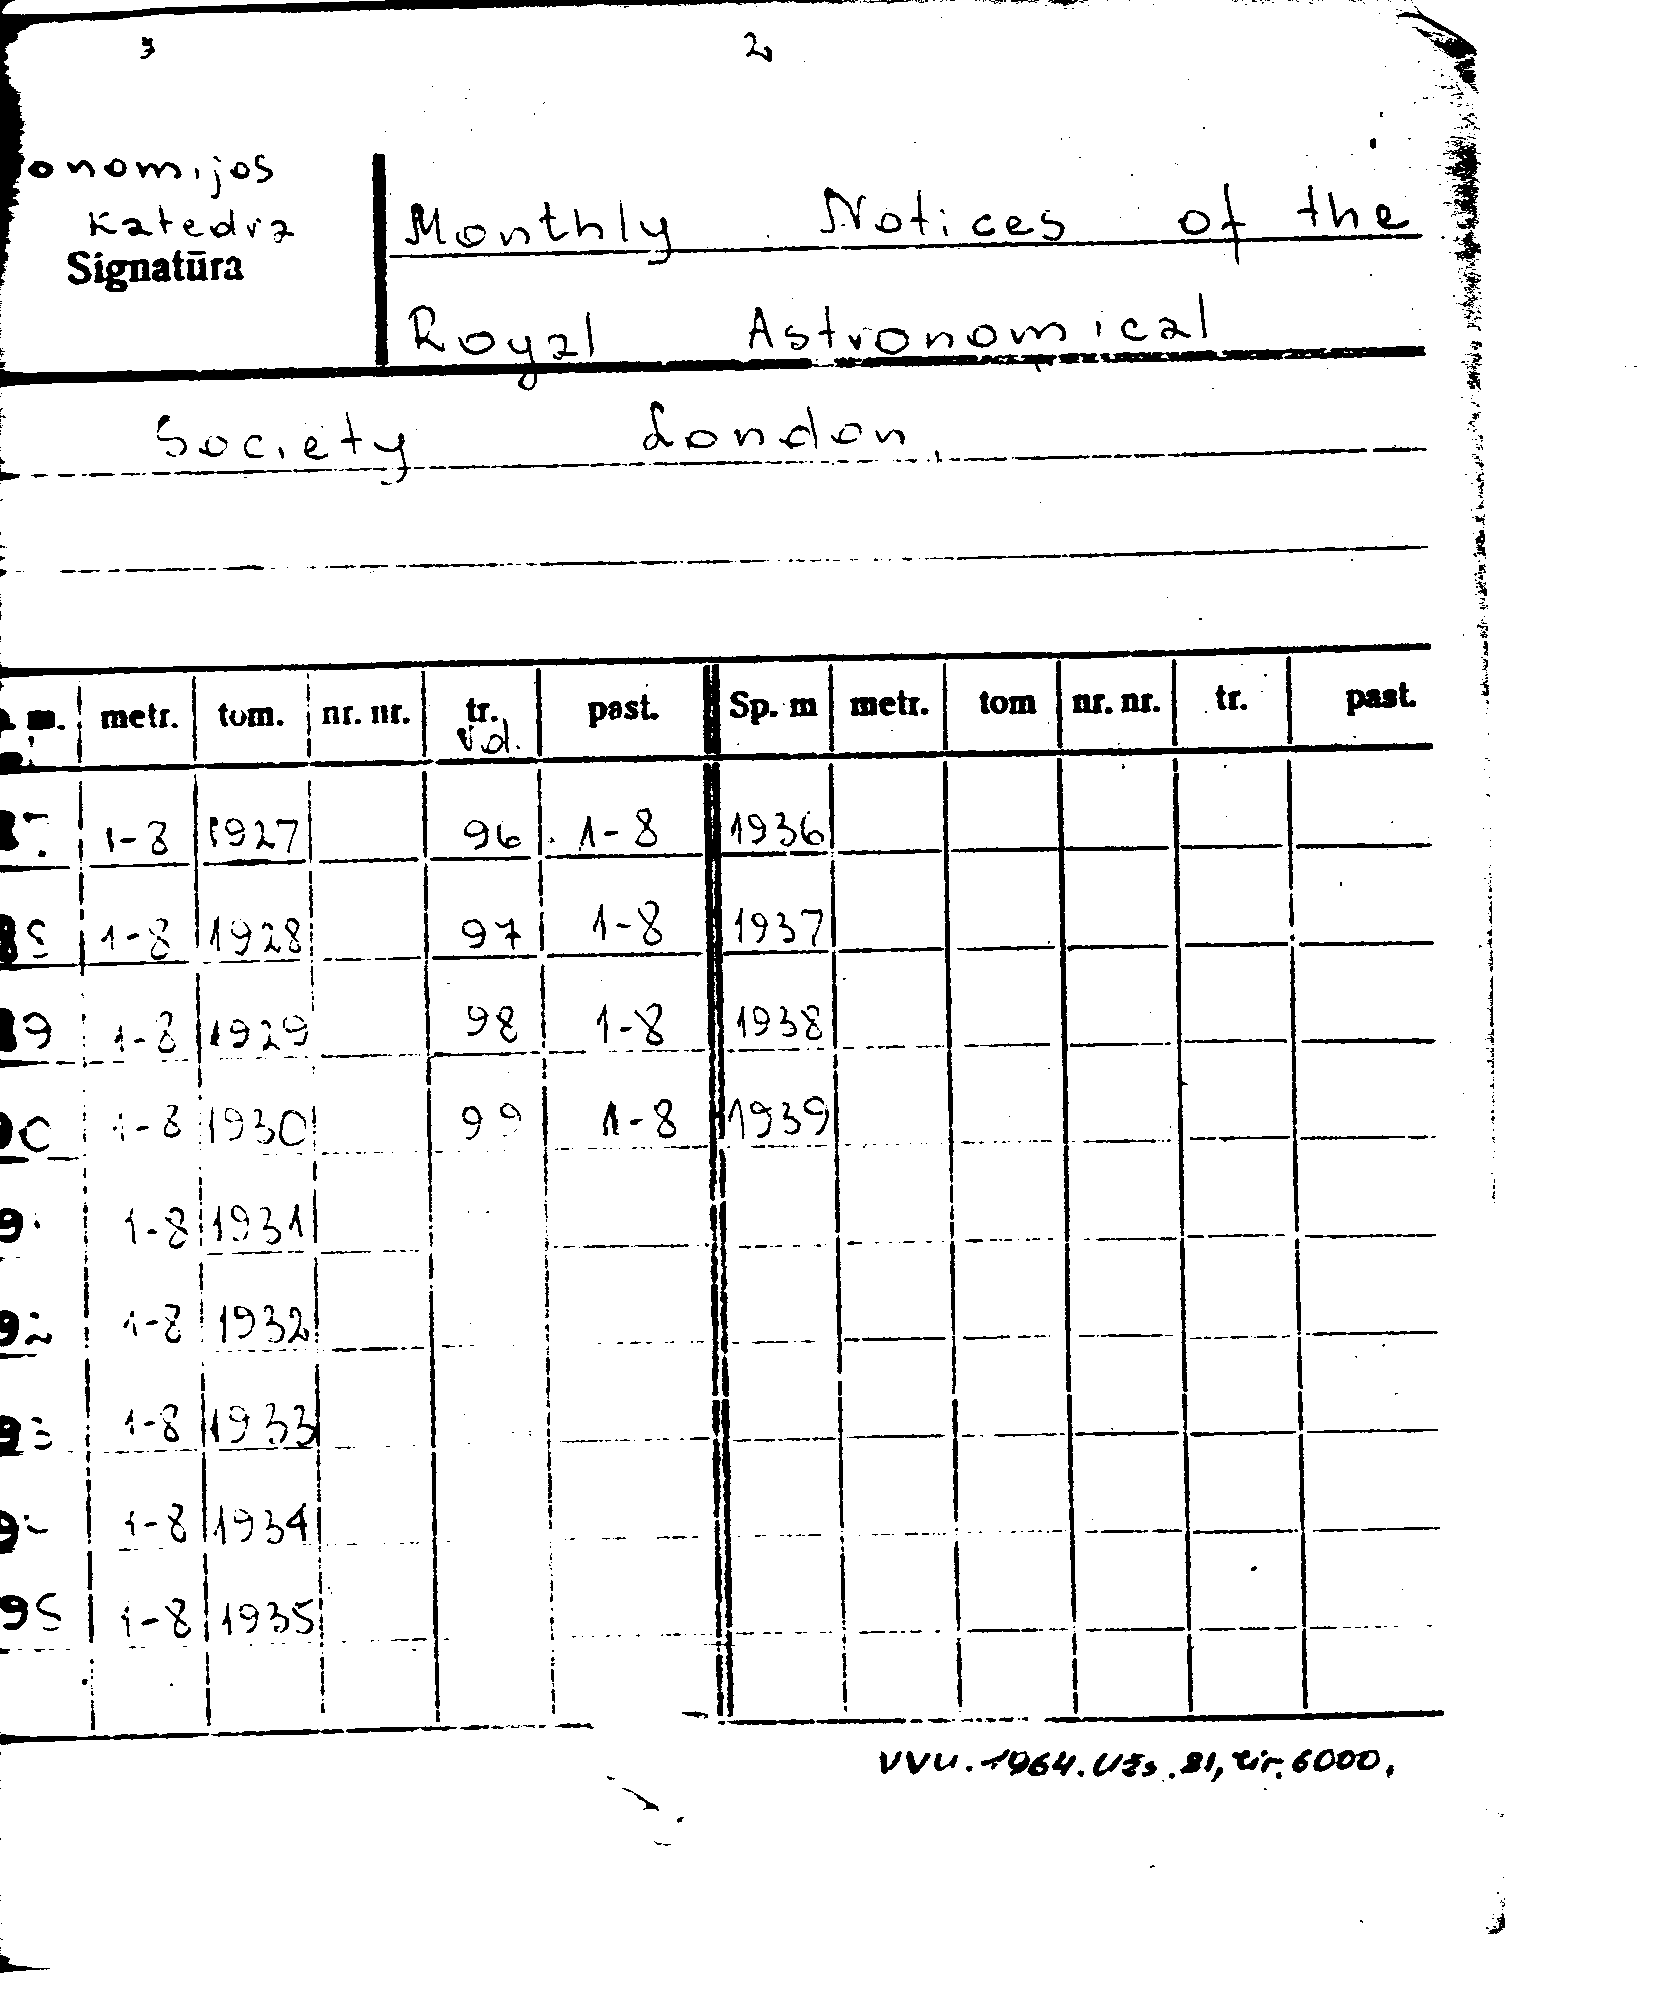 3 2
onomijos
Katedra
Signatūra
Monthly Notices of the
Royal Astronomical
Society London,
m. metr. tom. nr. nr. tr. past. Sp. m metr. tom nr. nr. tr. past.
Vol.
87 1-8 1927 96 1-8 1936
88 1-8 1928 97 1-8 1937
89 1-8 1929 98 1-8 1938
90 1-8 1930 99 1-8 1939
9 1-8 1931
92 1-8 1932
93 1-8 1933
9 1-8 1934
95 1-8 1935
VVU. 1964. Užs. 81, tir. 6000.